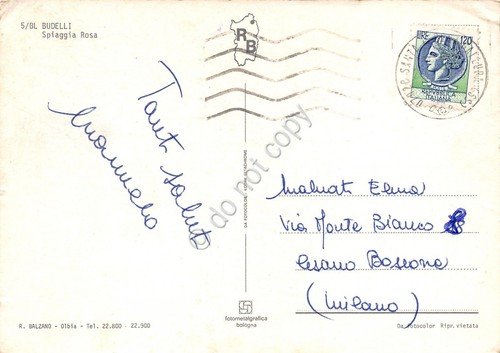 5/BL BUDELLI
Spiaggia Rosa
R B
LIRE 120
REPUBBLICA
ITALIANA
Tanti saluti
Manuela
do not copy
Malnati Elena
Via Monte Bianco 8
Cesano Boscone
(Milano)
fotometalgrafica
bologna
R. BALZANO - Olbia - Tel. 22.800 - 22.900
Da fotocolor Ripr. vietata